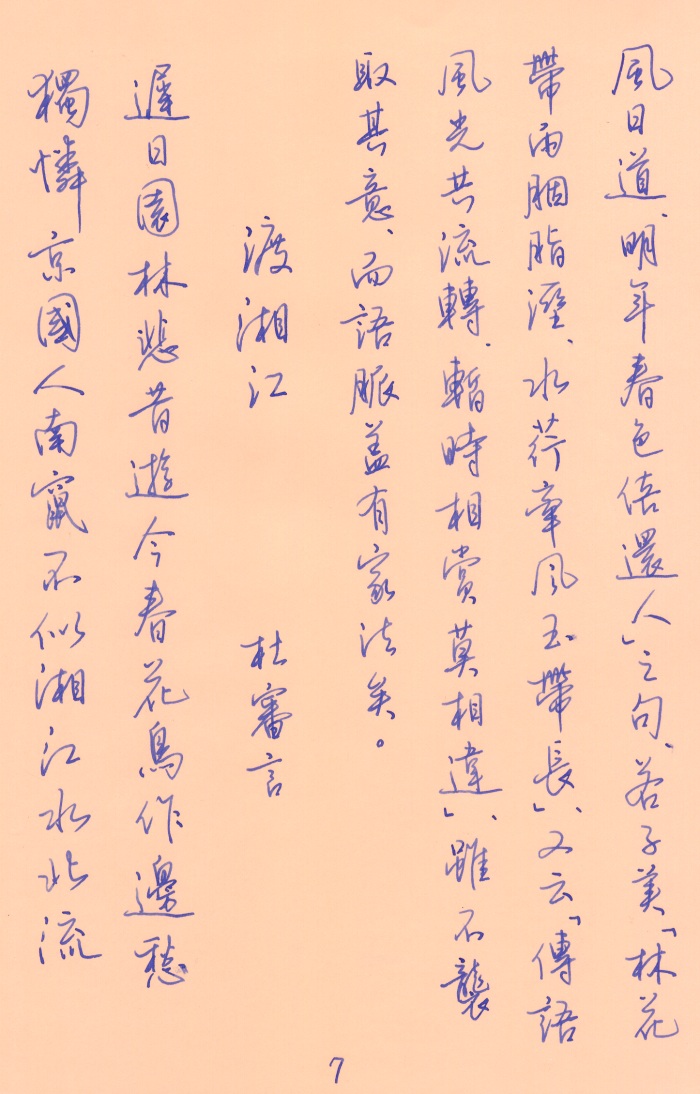 風日道、明年春色倍還人」之句、若子美「林花
帶雨胭脂溼、水荇牽風玉帶長」、又云「傳語
風光共流轉、暫時相賞莫相違」、雖不襲
取其意、而語脈蓋有家法矣。
渡湘江 杜審言
遲日園林悲昔遊今春花鳥作邊愁
獨憐京國人南竄不似湘江水北流
7